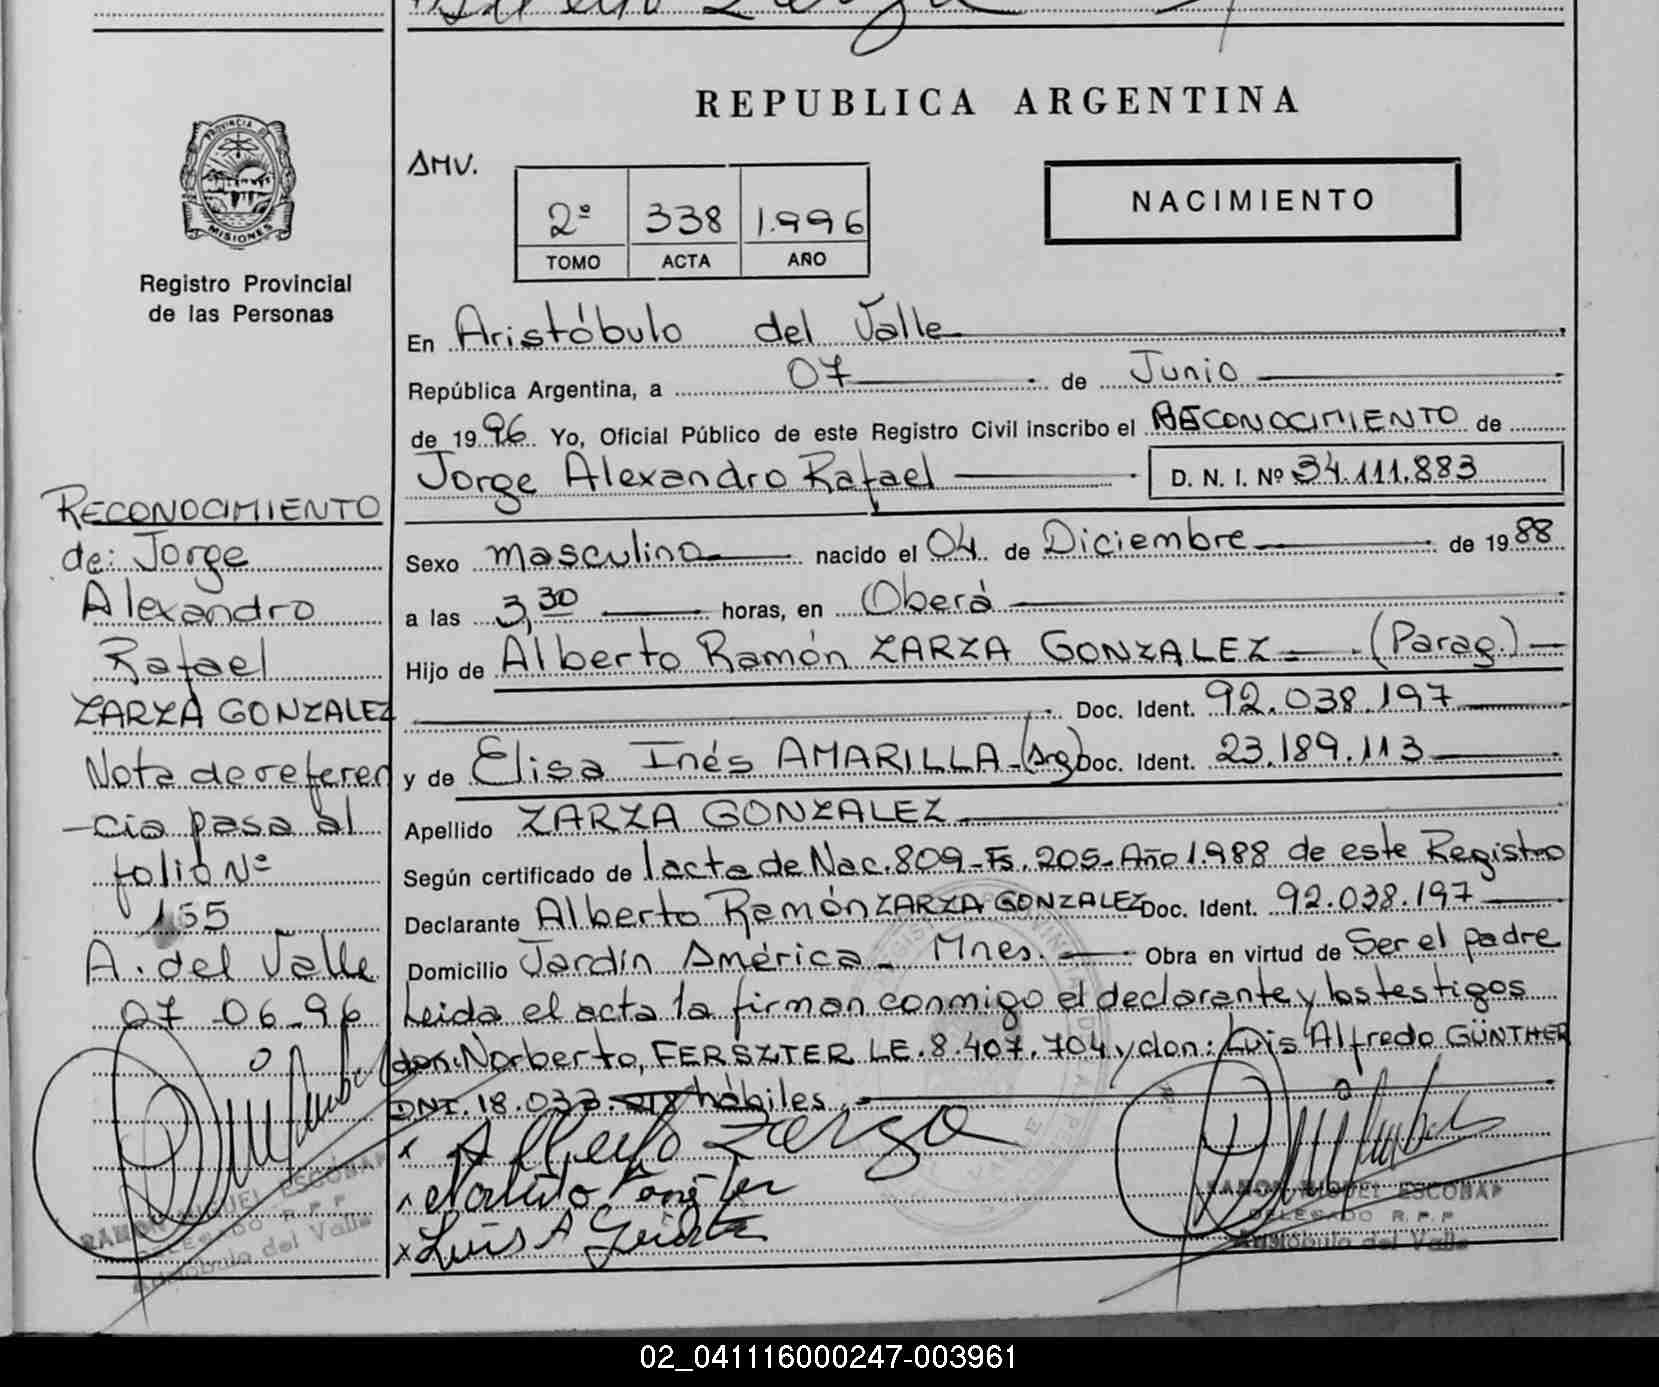 REPUBLICA ARGENTINA
PROVINCIA DE
MISIONES
Registro Provincial
de las Personas
AMV.
2º 338 1.996
TOMO ACTA AÑO
NACIMIENTO
En Aristóbulo del Valle
República Argentina, a 07 de Junio
de 1996 Yo, Oficial Público de este Registro Civil inscribo el RECONOCIMIENTO de
Jorge Alexandro Rafael D. N. I. Nº 34.111.883
Sexo masculino nacido el 04 de Diciembre de 1988
a las 3,30 horas, en Oberá
Hijo de Alberto Ramón ZARZA GONZALEZ (Parag.)
Doc. Ident. 92.038.197
y de Elisa Inés AMARILLA (Arg) Doc. Ident. 23.189.113
Apellido ZARZA GONZALEZ
Según certificado de l acta de Nac. 809-Fs. 205-Año 1.988 de este Registro
Declarante Alberto Ramón ZARZA GONZALEZ Doc. Ident. 92.038.197
Domicilio Jardín América - Mnes. Obra en virtud de Ser el padre
Leida el acta la firman conmigo el declarante y los testigos
don: Norberto, FERSZTER LE. 8.407.704 y don: Luis Alfredo GÜNTHER
DNI. 18.033. hábiles.
Alberto Zarza
Luis A
RAMON MIGUEL ESCOBAR
DELEGADO R.P.P
Aristóbulo del Valle
RECONOCIMIENTO
de: Jorge
Alexandro
Rafael
ZARZA GONZALEZ
Nota de referen
-cia pasa al
folio Nº
155
A. del Valle
07-06-96
RAMON MIGUEL ESCOBAR
DELEGADO R.P.P
Aristóbulo del Valle
02_041116000247-003961